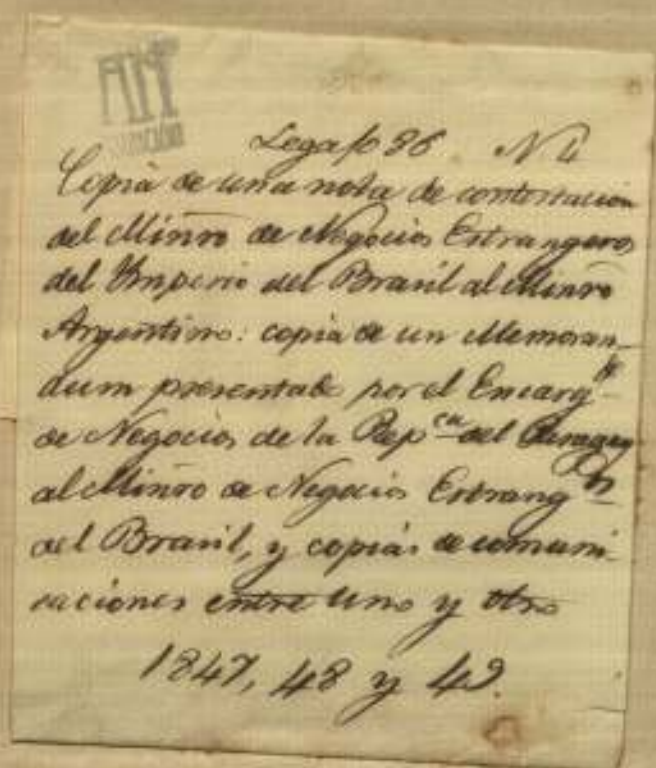 Legajo 86 N 4
Copia de una nota de contestacion
del Minro de Negocios Estrangeros
del Imperio del Brasil al Minro
Argentino: copia de un Memoran-
dum presentado por el Encargdo
de Negocios de la Repca del Paraguay
al Minro de Negocios Estrangros
del Brasil, y copias de comuni-
caciones entre uno y otro
1847, 48 y 49.